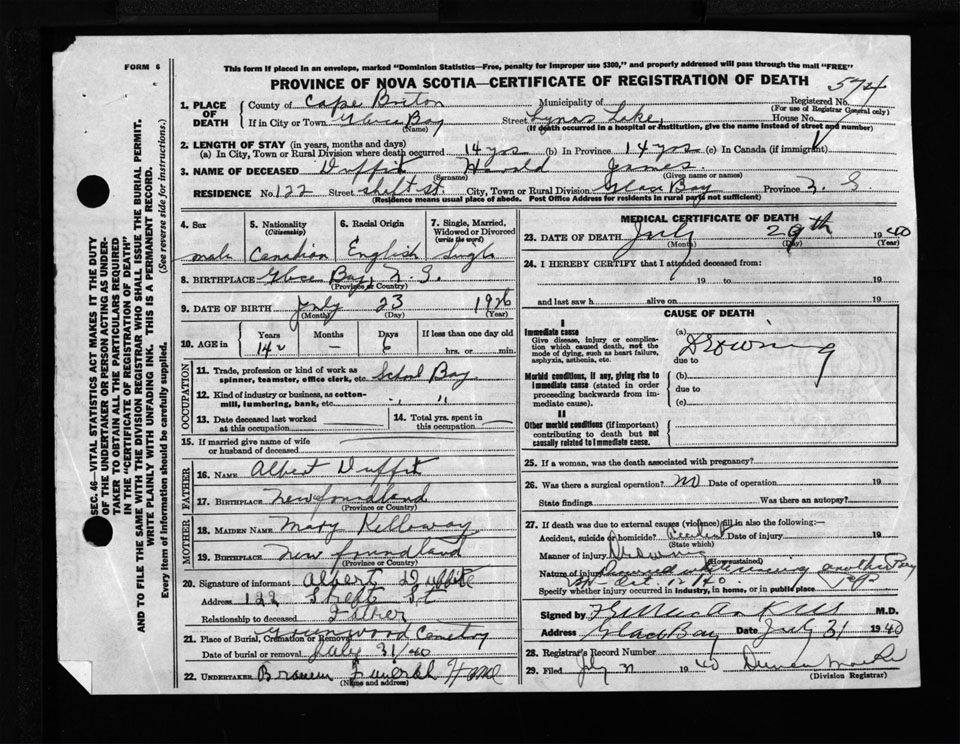 FORM 6
This form if placed in an envelope, marked "Dominion Statistics—Free, penalty for improper use $300," and properly addressed will pass through the mail "FREE"
PROVINCE OF NOVA SCOTIA—CERTIFICATE OF REGISTRATION OF DEATH
574
Registered No.
(For use of Registrar General only)
1. PLACE OF DEATH
County of Cape Breton Municipality of
If in City or Town Glace Bay Street Lynas Lake House No.
(Name) (If death occurred in a hospital or institution, give the name instead of street and number)
2. LENGTH OF STAY (in years, months and days)
(a) In City, Town or Rural Division where death occurred 14 yrs (b) In Province 14 yrs (c) In Canada (if immigrant)
3. NAME OF DECEASED Duffit Harold James
(Surname) (Given name or names)
RESIDENCE No. 122 Street Shaft St. City, Town or Rural Division Glace Bay Province N. S
(Residence means usual place of abode. Post Office Address for residents in rural parts not sufficient)
4. Sex
male
5. Nationality (Citizenship)
Canadian
6. Racial Origin
English
7. Single, Married, Widowed or Divorced (write the word)
Single
8. BIRTHPLACE Glace Bay, N. S.
(Province or Country)
9. DATE OF BIRTH July 23 1926
(Month) (Day) (Year)
10. AGE in
Years 14
Months —
Days 6
If less than one day old
hrs. or min.
OCCUPATION
11. Trade, profession or kind of work as spinner, teamster, office clerk, etc. School Boy
12. Kind of industry or business, as cotton-mill, lumbering, bank, etc. " "
13. Date deceased last worked at this occupation
14. Total yrs. spent in this occupation
15. If married give name of wife or husband of deceased
FATHER
16. NAME Albert Duffit
17. BIRTHPLACE Newfoundland
(Province or Country)
MOTHER
18. MAIDEN NAME Mary Kelloway
19. BIRTHPLACE New foundland
(Province or Country)
20. Signature of informant Albert Duffit
Address 122 St
Relationship to deceased Father
21. Place of Burial, Cremation or Removal Greenwood Cemetery
Date of burial or removal July 31/40
22. UNDERTAKER Funeral Home
(Name and address)
MEDICAL CERTIFICATE OF DEATH
23. DATE OF DEATH July 29th 1940
(Month) (Day) (Year)
24. I HEREBY CERTIFY that I attended deceased from:
19 to 19
and last saw h alive on 19
CAUSE OF DEATH
I
Immediate cause
Give disease, injury or complication which caused death, not the mode of dying, such as heart failure, asphyxia, asthenia, etc.
(a) Drowning
due to
Morbid conditions, if any, giving rise to immediate cause (stated in order proceeding backwards from immediate cause).
(b)
due to
(c)
II
Other morbid conditions (if important) contributing to death but not causally related to immediate cause.
25. If a woman, was the death associated with pregnancy?
26. Was there a surgical operation? no Date of operation 19
State findings Was there an autopsy?
27. If death was due to external causes (violence) fill in also the following:—
Accident, suicide or homicide? Date of injury 19
(State which)
Manner of injury Drowning
(How sustained)
Nature of injury
Specify whether injury occurred in industry, in home, or in public place
Signed by M.D.
Address Glace Bay Date July 31 1940
28. Registrar's Record Number
29. Filed 1940
(Division Registrar)
SEC. 46—VITAL STATISTICS ACT MAKES IT THE DUTY OF THE UNDERTAKER OR PERSON ACTING AS UNDERTAKER TO OBTAIN ALL THE PARTICULARS REQUIRED IN THE "CERTIFICATE OF REGISTRATION OF DEATH" AND TO FILE THE SAME WITH THE DIVISION REGISTRAR WHO SHALL ISSUE THE BURIAL PERMIT.
WRITE PLAINLY WITH UNFADING INK. THIS IS A PERMANENT RECORD.
Every item of information should be carefully supplied. (See reverse side for instructions.)